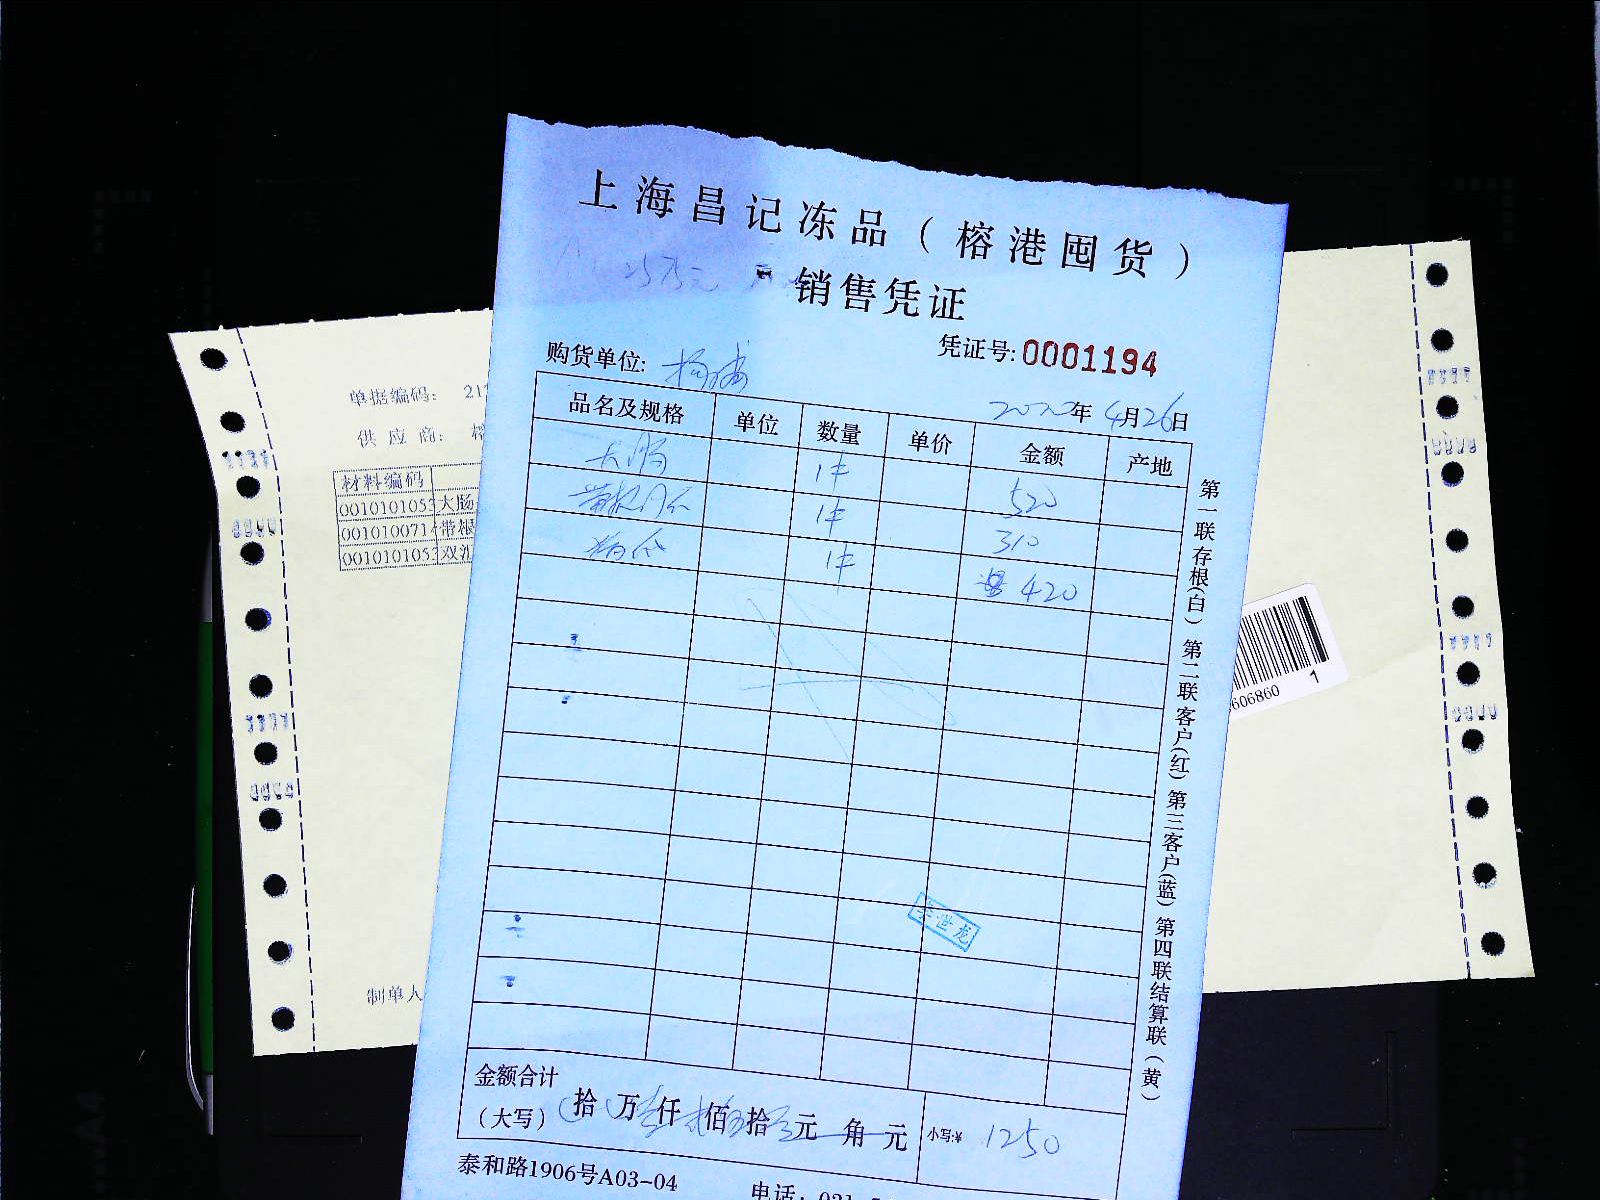 上海昌记冻品（榕港囤货）
销售凭证
凭证号:0001194
购货单位:
2020年4月26日
品名及规格 单位 数量 单价 金额 产地
大肠 1件 520
1件 310
1件 420
第一联存根(白) 第二联客户(红) 第三客户(蓝) 第四联结算联(黄)
李世龙
金额合计
(大写) 拾 万 仟 佰 拾 元 角 元 小写:¥ 1250
泰和路1906号A03-04
电话: 021-
单据编码: 21
供应商: 榕
材料编码
001010105 大肠
001010071 带根
001010105 双汇
制单人
606860 1